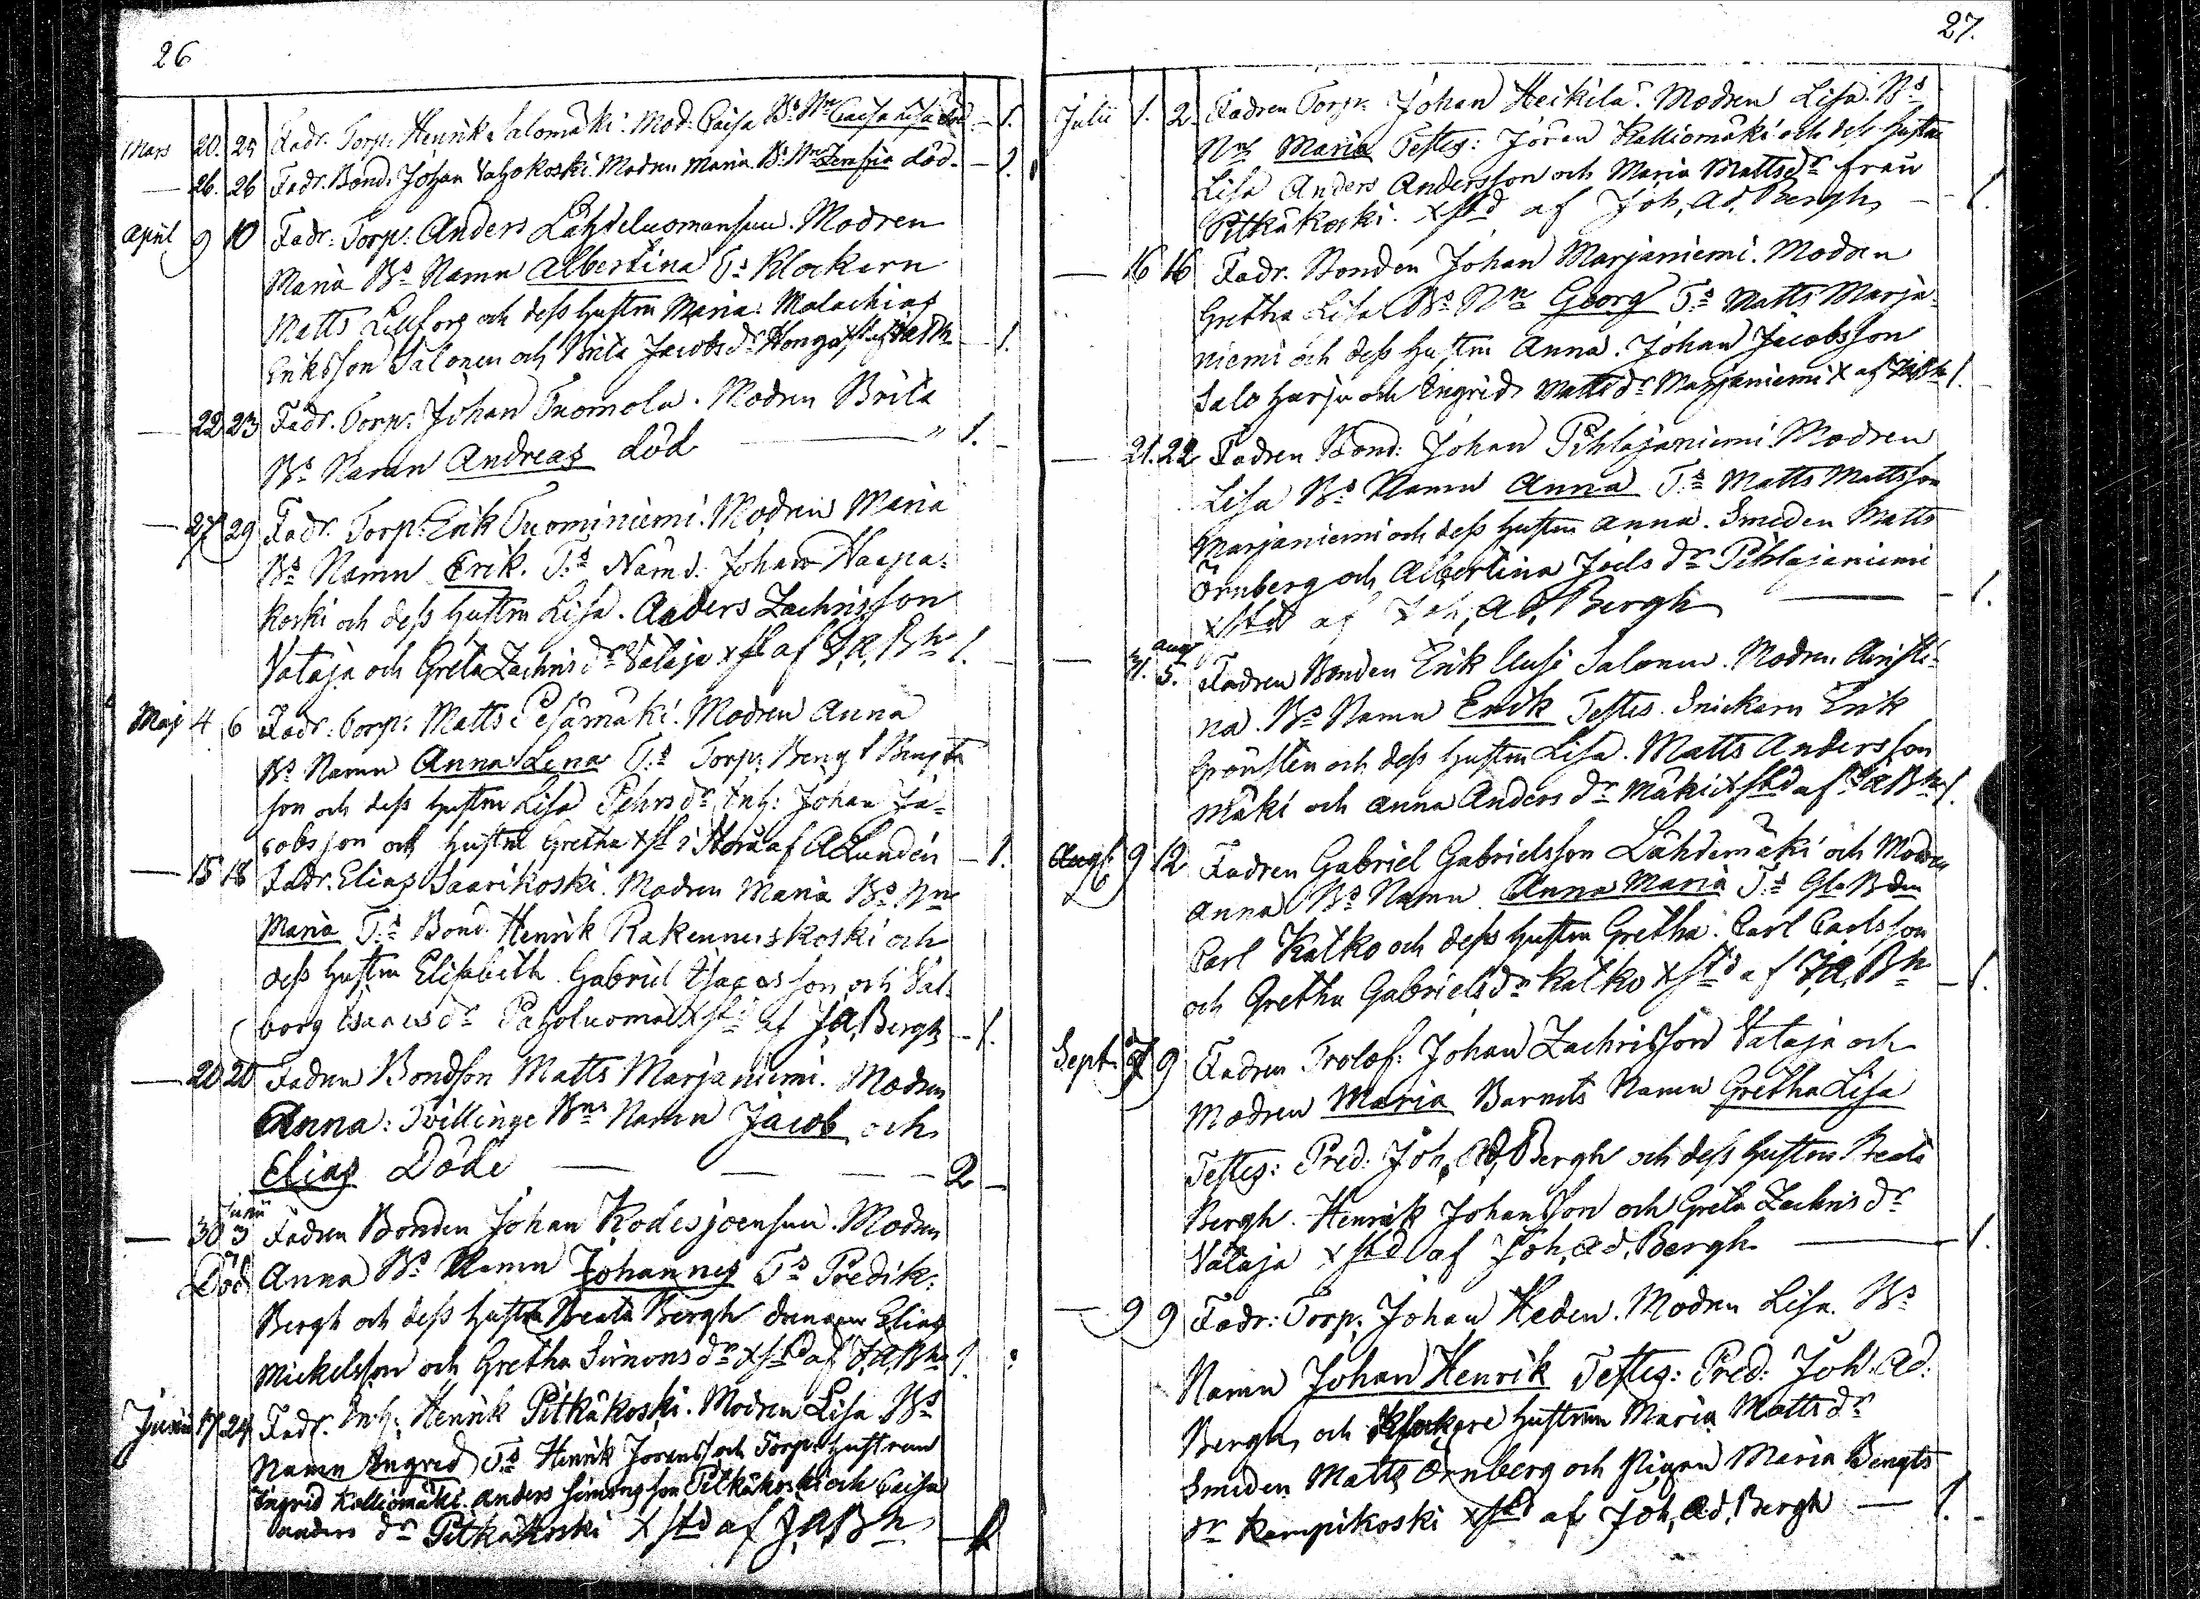 26
Mars 20. 25 Fadr. Torp: Henrik Salomäki. Mod: Caisa Bs Nn Caisa Lisa död — 1.
— 26. 26 Fadr. Bond. Johan Vahokoski. Modren Maria. Bs Nn död. — 1.
April 9 10 Fadr: Torp: Anders Lähdeluomansuu. Modren
Maria Bs Namn Albertina Ts Klockarn
Matts Lillfors och dess hustru Maria. Malachias
Eriksson Salonen och Brita Jacobsdr Honga — 1.
— 22 23 Fadr. Torp: Johan Tuomola. Modren Brita
Bs Namn Andreas död — " 1. -
— 27 29 Fadr. Torp: Erik Tuominiemi. Modren Maria
Bs Namn Erik. Ts Nämd. Johan Haapa-
koski och dess hustru Lisa. Anders Zachrisson
Vataja och Greta Zachrisdr Vataja xst af J. A. Bh 1. -
Maj 4 6 Fadr: Torp: Matts Pesämäki. Modren Anna
Bs Namn Anna Lena Ts Torp: Bengt Bengts
son och dess hustru Lisa Pehrsdr Inh: Johan Ja-
cobsson och hustru Gretha xst i Storå af A Lundén — 1.
— 15 18 Fadr. Elias Saarikoski. Modren Maria Bs Nn
Maria Ts Bond. Henrik Rakennuskoski och
dess hustru Elisabeth. Gabriel Isacsson och Val-
borg Isacsdr Paholuoma xst af J. A. Bergh — 1.
— 20 20 Fadren Bondson Matts Marjaniemi. Modren
Anna: Tvillinge Bns Namn Jacob och
Elias Döde — — — 2 -
— 30 Junii 3 Fadren Bonden Johan Kodesjoensuu. Modren
Död Anna Bs Namn Johannes Ts Predik:
Bergh och dess hustru Beata Bergh drengen Elias
Mickelsson och Gretha Simonsdr xstd af J. A. Bh 1.
Junii 17 24 Fadr. Inh: Henrik Pitkäkoski. Modren Lisa Bs
Namn Ingred Ts Henrik Joransson och Torp: hustrun
Ingrid Kalliomäki. Anders Simonsson Pitkäkoski och Caisa
Andersdr Pitkäkoski xstd af J. A. Bh — 1
27.
Julii 1. 2. Fadren Torp: Johan Heikilä. Modren Lisa. Bs
Nn Maria Testes: Jören Kalliomäki och dess hustru
Lisa Anders Andersson och Maria Mattsdr från
Pitkäkoski. xstd af Joh. Ad. Bergh — 1.
— 16 16 Fadr. Bonden Johan Marjaniemi. Modren
Gretha Lisa Bs Nn Georg Ts Matts Marja-
niemi och dess hustru Anna. Johan Jacobsson
Salo harju och Ingrid Mattsdr Marjaniemi x af 1. -
— 21. 22 Fadren Bond: Johan Pihlajaniemi Modren
Lisa Bs Namn Anna Ts Matts Mattsson
Marjaniemi och dess hustru Anna. Smeden Matts
Örnberg och Albertina Joelsdr Pihlajaniemi
xstd af Joh. Ad. Bergh — 1.
— 31. Aug 5. Fadren Bonden Erik Uusi Salonen. Modren Christi-
na. Bs Namn Erik Testes. Snickarn Erik
Grönsten och dess hustru Lisa. Matts Andersson
Mäki och Anna Andersdr Mäki xstd af J A Bh 1.
Aug: 9 12 Fadren Gabriel Gabrielsson Lähdemäki och Modren
Anna Bs Namn Anna Maria Ts Gla Bden
Carl Katko och dess hustru Gretha. Carl Carlsson
och Gretha Gabrielsdr Katko xstd af J. A. Bh — 1.
Sept: 7 9 Fadren Trolof: Johan Zachrisson Vataja och
Modren Maria Barnets Namn Gretha Lisa
Testes: Pred: Joh. Ad. Bergh och dess hustru Beata
Bergh. Henrik Johansson och Greta Zachrisdr
Vataja xstd af Joh. Ad. Bergh — 1.
— 9 9 Fadr: Torp: Johan Heden. Modren Lisa. Bs
Namn Johan Henrik Testes: Pred: Joh. Ad.
Bergh och Klockare hustrun Maria Mattsdr
Smeden Matts Örnberg och Pigan Maria Bengts
dr Kampikoski xstd af Joh. Ad. Bergh — 1. -